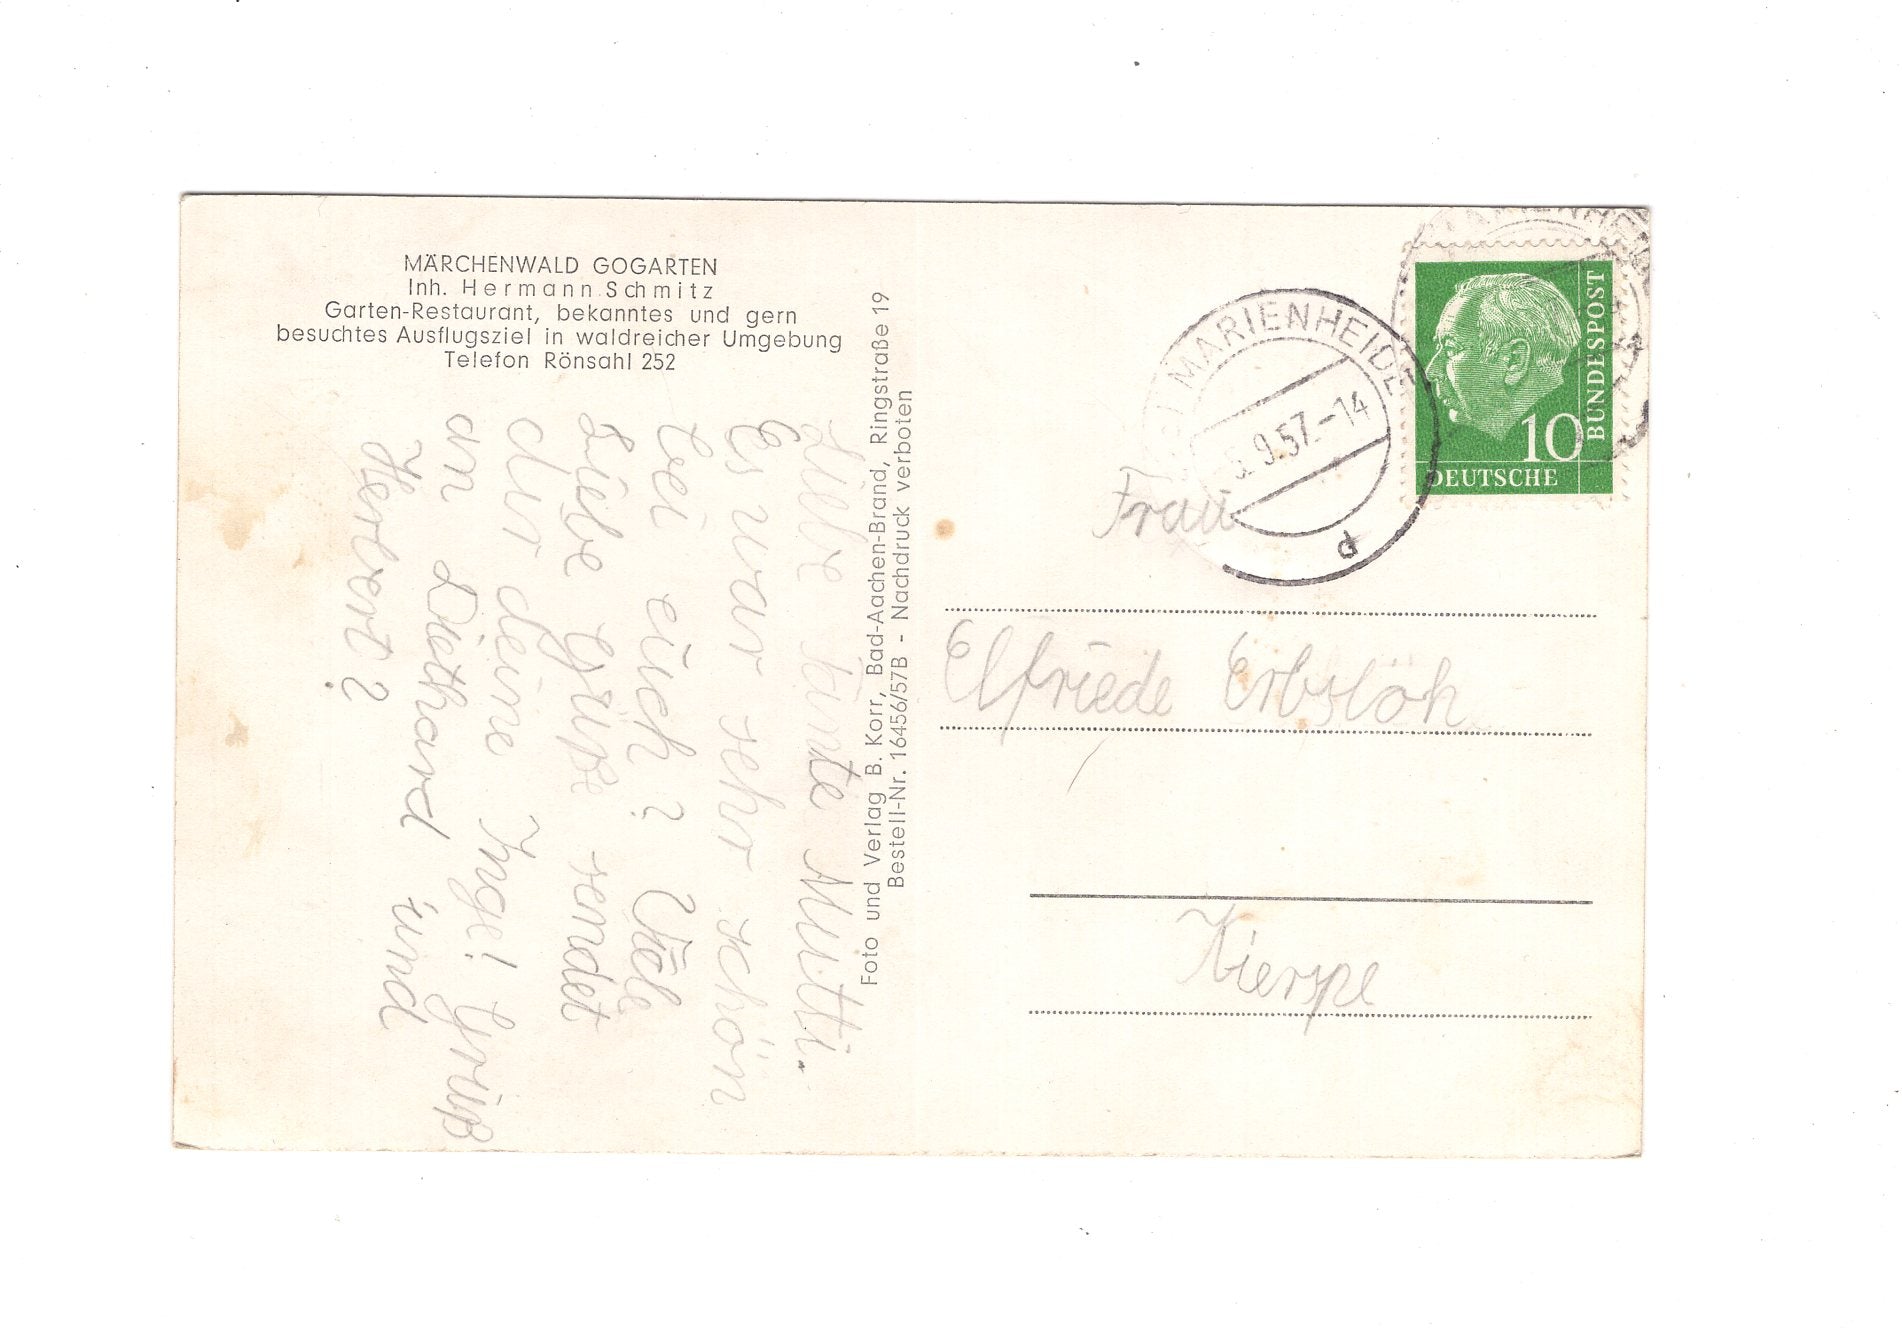 MÄRCHENWALD GOGARTEN
Inh. Hermann Schmitz
Garten-Restaurant, bekanntes und gern
besuchtes Ausflugsziel in waldreicher Umgebung
Telefon Rönsahl 252
Liebe Tante Mutti.
Es war sehr schön
bei euch? Viele
Liebe Grüße sendet
dir deine Inge! Grüß
an Diethard und
Herbert?
Foto und Verlag B. Korr, Bad-Aachen-Brand, Ringstraße 19
Bestell-Nr. 16456/57B - Nachdruck verboten
MARIENHEIDE
9.57.-14
d
BUNDESPOST
10
DEUTSCHE
Frau
Elfriede Erbslöh
Kierspe